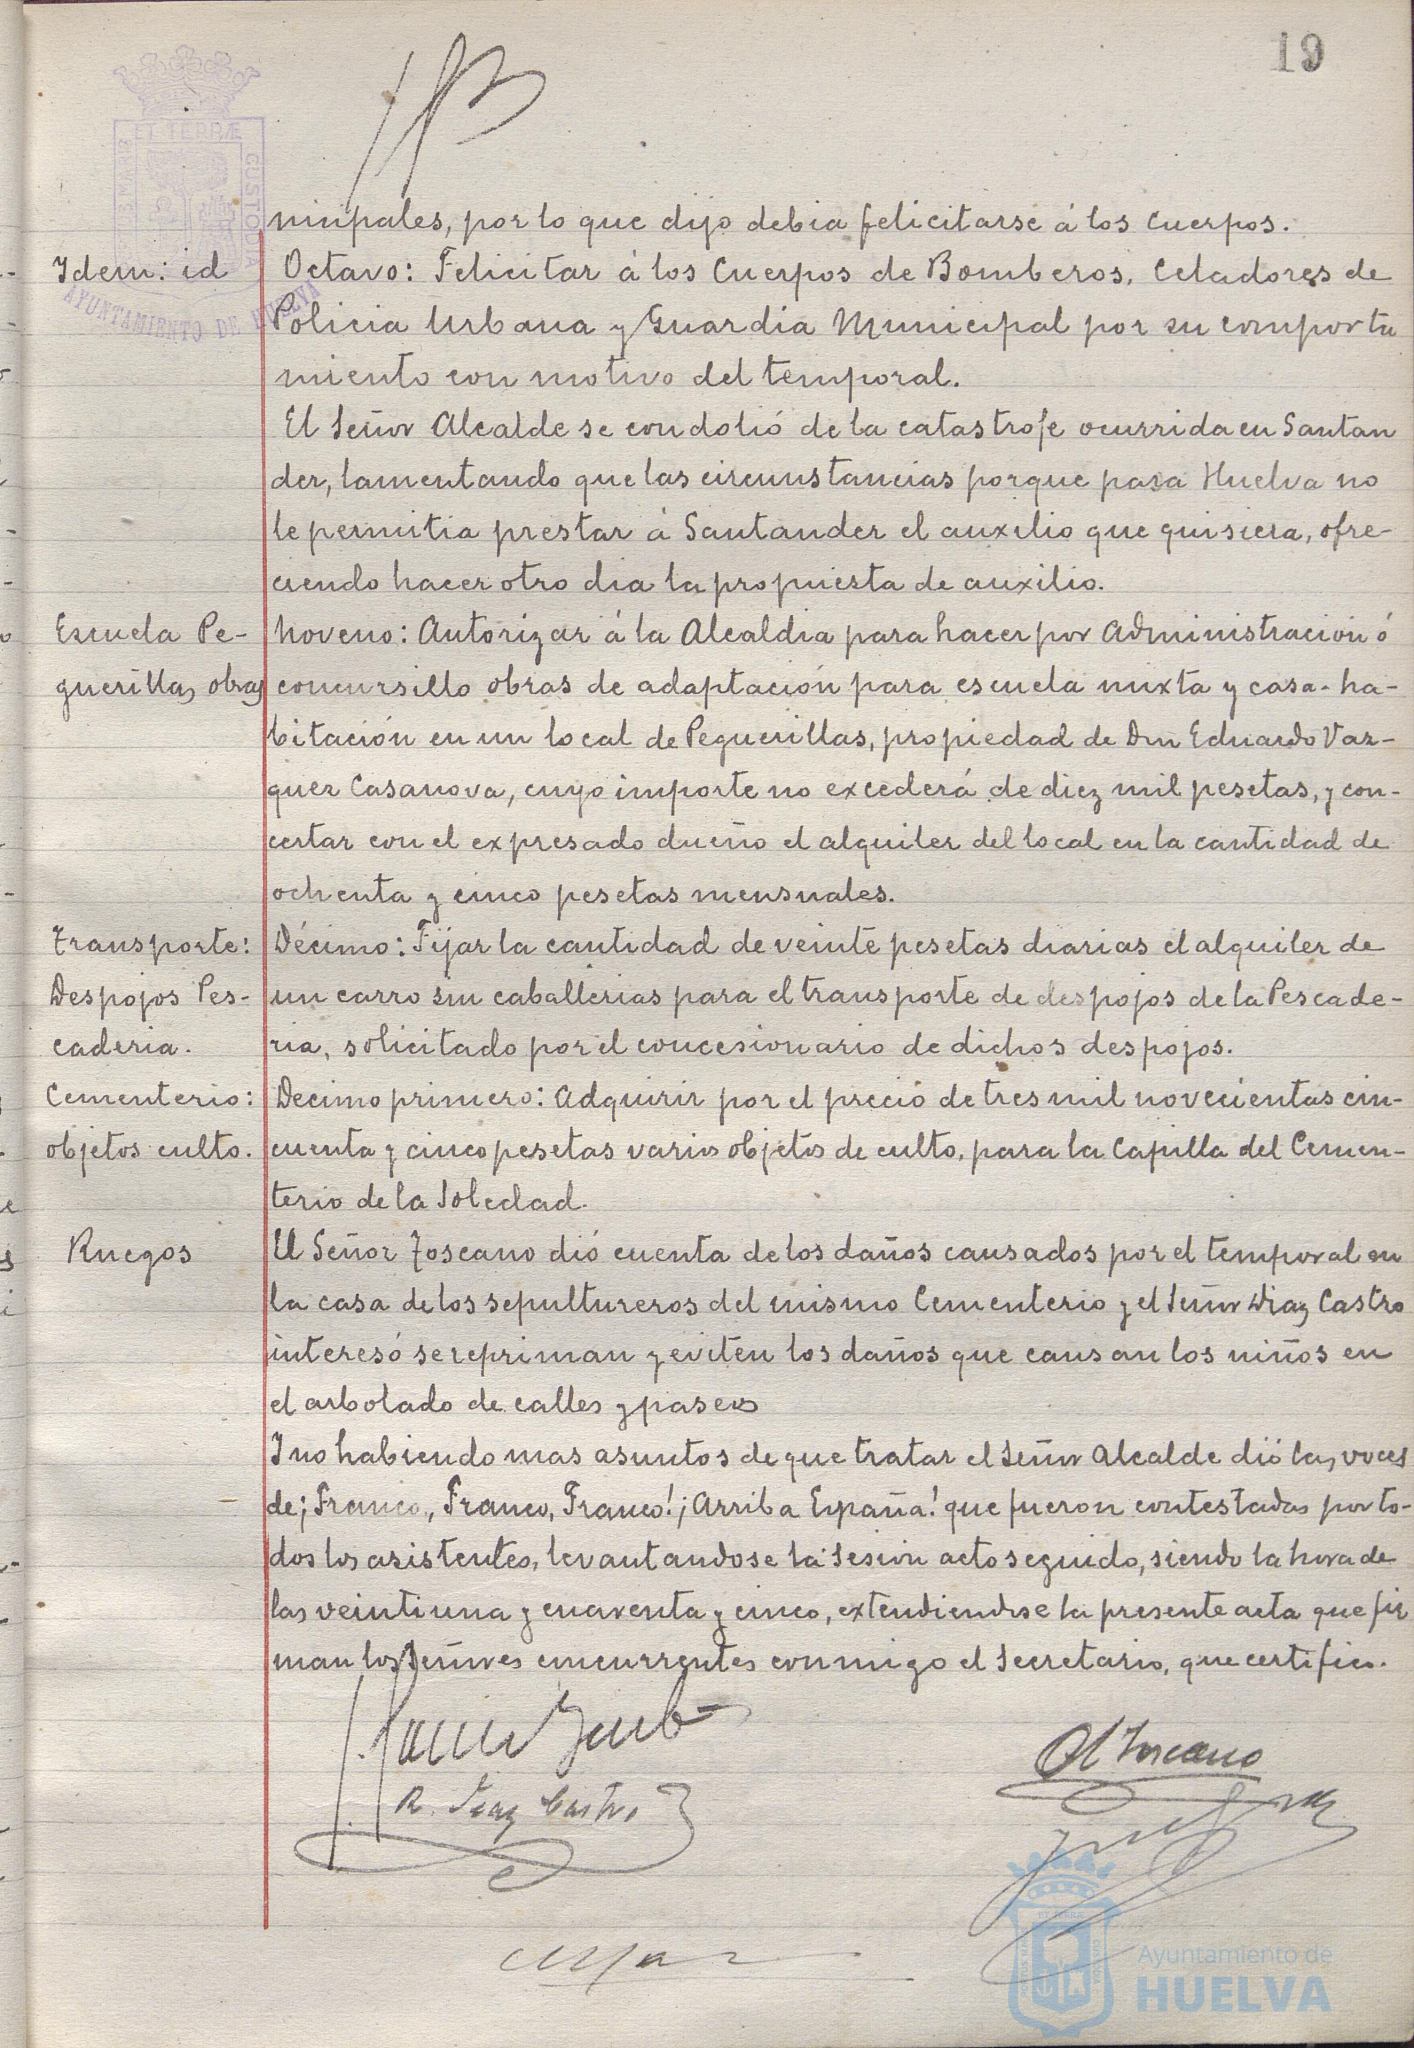 19
nicipales, por lo que dijo debia felicitarse á los cuerpos.
Idem: id
Octavo: Felicitar á los Cuerpos de Bomberos, Celadores de
Policia Urbana y Guardia Municipal por su comporta
miento con motivo del temporal.
El Señor Alcalde se condolió de la catastrofe ocurrida en Santan
der, lamentando que las circunstancias porque pasa Huelva no
le permitia prestar á Santander el auxilio que quisiera, ofre-
ciendo hacer otro dia la propuesta de auxilio.
Escuela Pe-
guerillas, obras
Noveno: Autorizar á la Alcaldia para hacer por Administración ó
concursillo obras de adaptación para escuela mixta y casa-ha-
bitación en un local de Peguerillas, propiedad de Don Eduardo Vaz-
quez Casanova, cuyo importe no excederá de diez mil pesetas, y con-
certar con el expresado dueño el alquiler del local en la cantidad de
ochenta y cinco pesetas mensuales.
Transporte:
Despojos Pes-
caderia.
Décimo: Fijar la cantidad de veinte pesetas diarias el alquiler de
un carro sin caballerias para el transporte de despojos de la Pescade-
ria, solicitado por el concesionario de dichos despojos.
Cementerio:
objetos culto.
Decimo primero: Adquirir por el precio de tres mil novecientas cin-
cuenta y cinco pesetas varios objetos de culto, para la Capilla del Cemen-
terio de la Soledad.
Ruegos
El Señor Toscano dió cuenta de los daños causados por el temporal en
la casa de los sepultureros del mismo Cementerio y el Señor Diaz Castro
interesó se repriman y eviten los daños que causan los niños en
el arbolado de calles y paseos
Y no habiendo mas asuntos de que tratar el Señor Alcalde dió las voces
de ¡Franco, Franco, Franco! ¡Arriba España! que fueron contestadas por to-
dos los asistentes, levantandose la Sesión acto seguido, siendo la hora de
las veintiuna y cuarenta y cinco, extendiendose la presente acta que fir
man los Señores concurrentes conmigo el Secretario, que certifico.
R. Diaz Castro
Toscano
ET TERRÆ CUSTODIA
AYUNTAMIENTO DE HUELVA
Ayuntamiento de
HUELVA